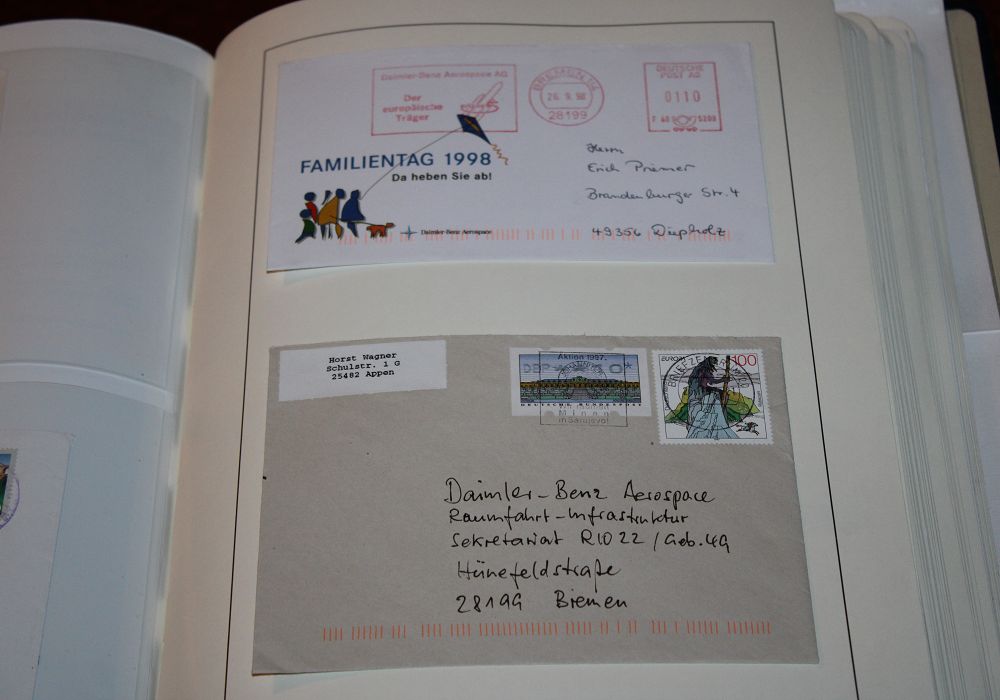 Daimler-Benz Aerospace AG
Der
europäische
Träger
BREMEN 14
26.9.98
28199
DEUTSCHE
POST AG
0110
5200
FAMILIENTAG 1998
Da heben Sie ab!
Daimler-Benz Aerospace
Herrn
Erich Priemer
Brandenburger Str. 4
49356 Diepholz
Horst Wagner
Schulstr. 1 G
25482 Appen
Aktion 1997.
DEUTSCHE BUNDESPOST
Minen
in Sarajevo!
EUROPA
100
BRIEFZENTRUM
Daimler-Benz Aerospace
Raumfahrt-Infrastruktur
Sekretariat RIO22/Geb.49
Hünefeldstraße
28199 Bremen